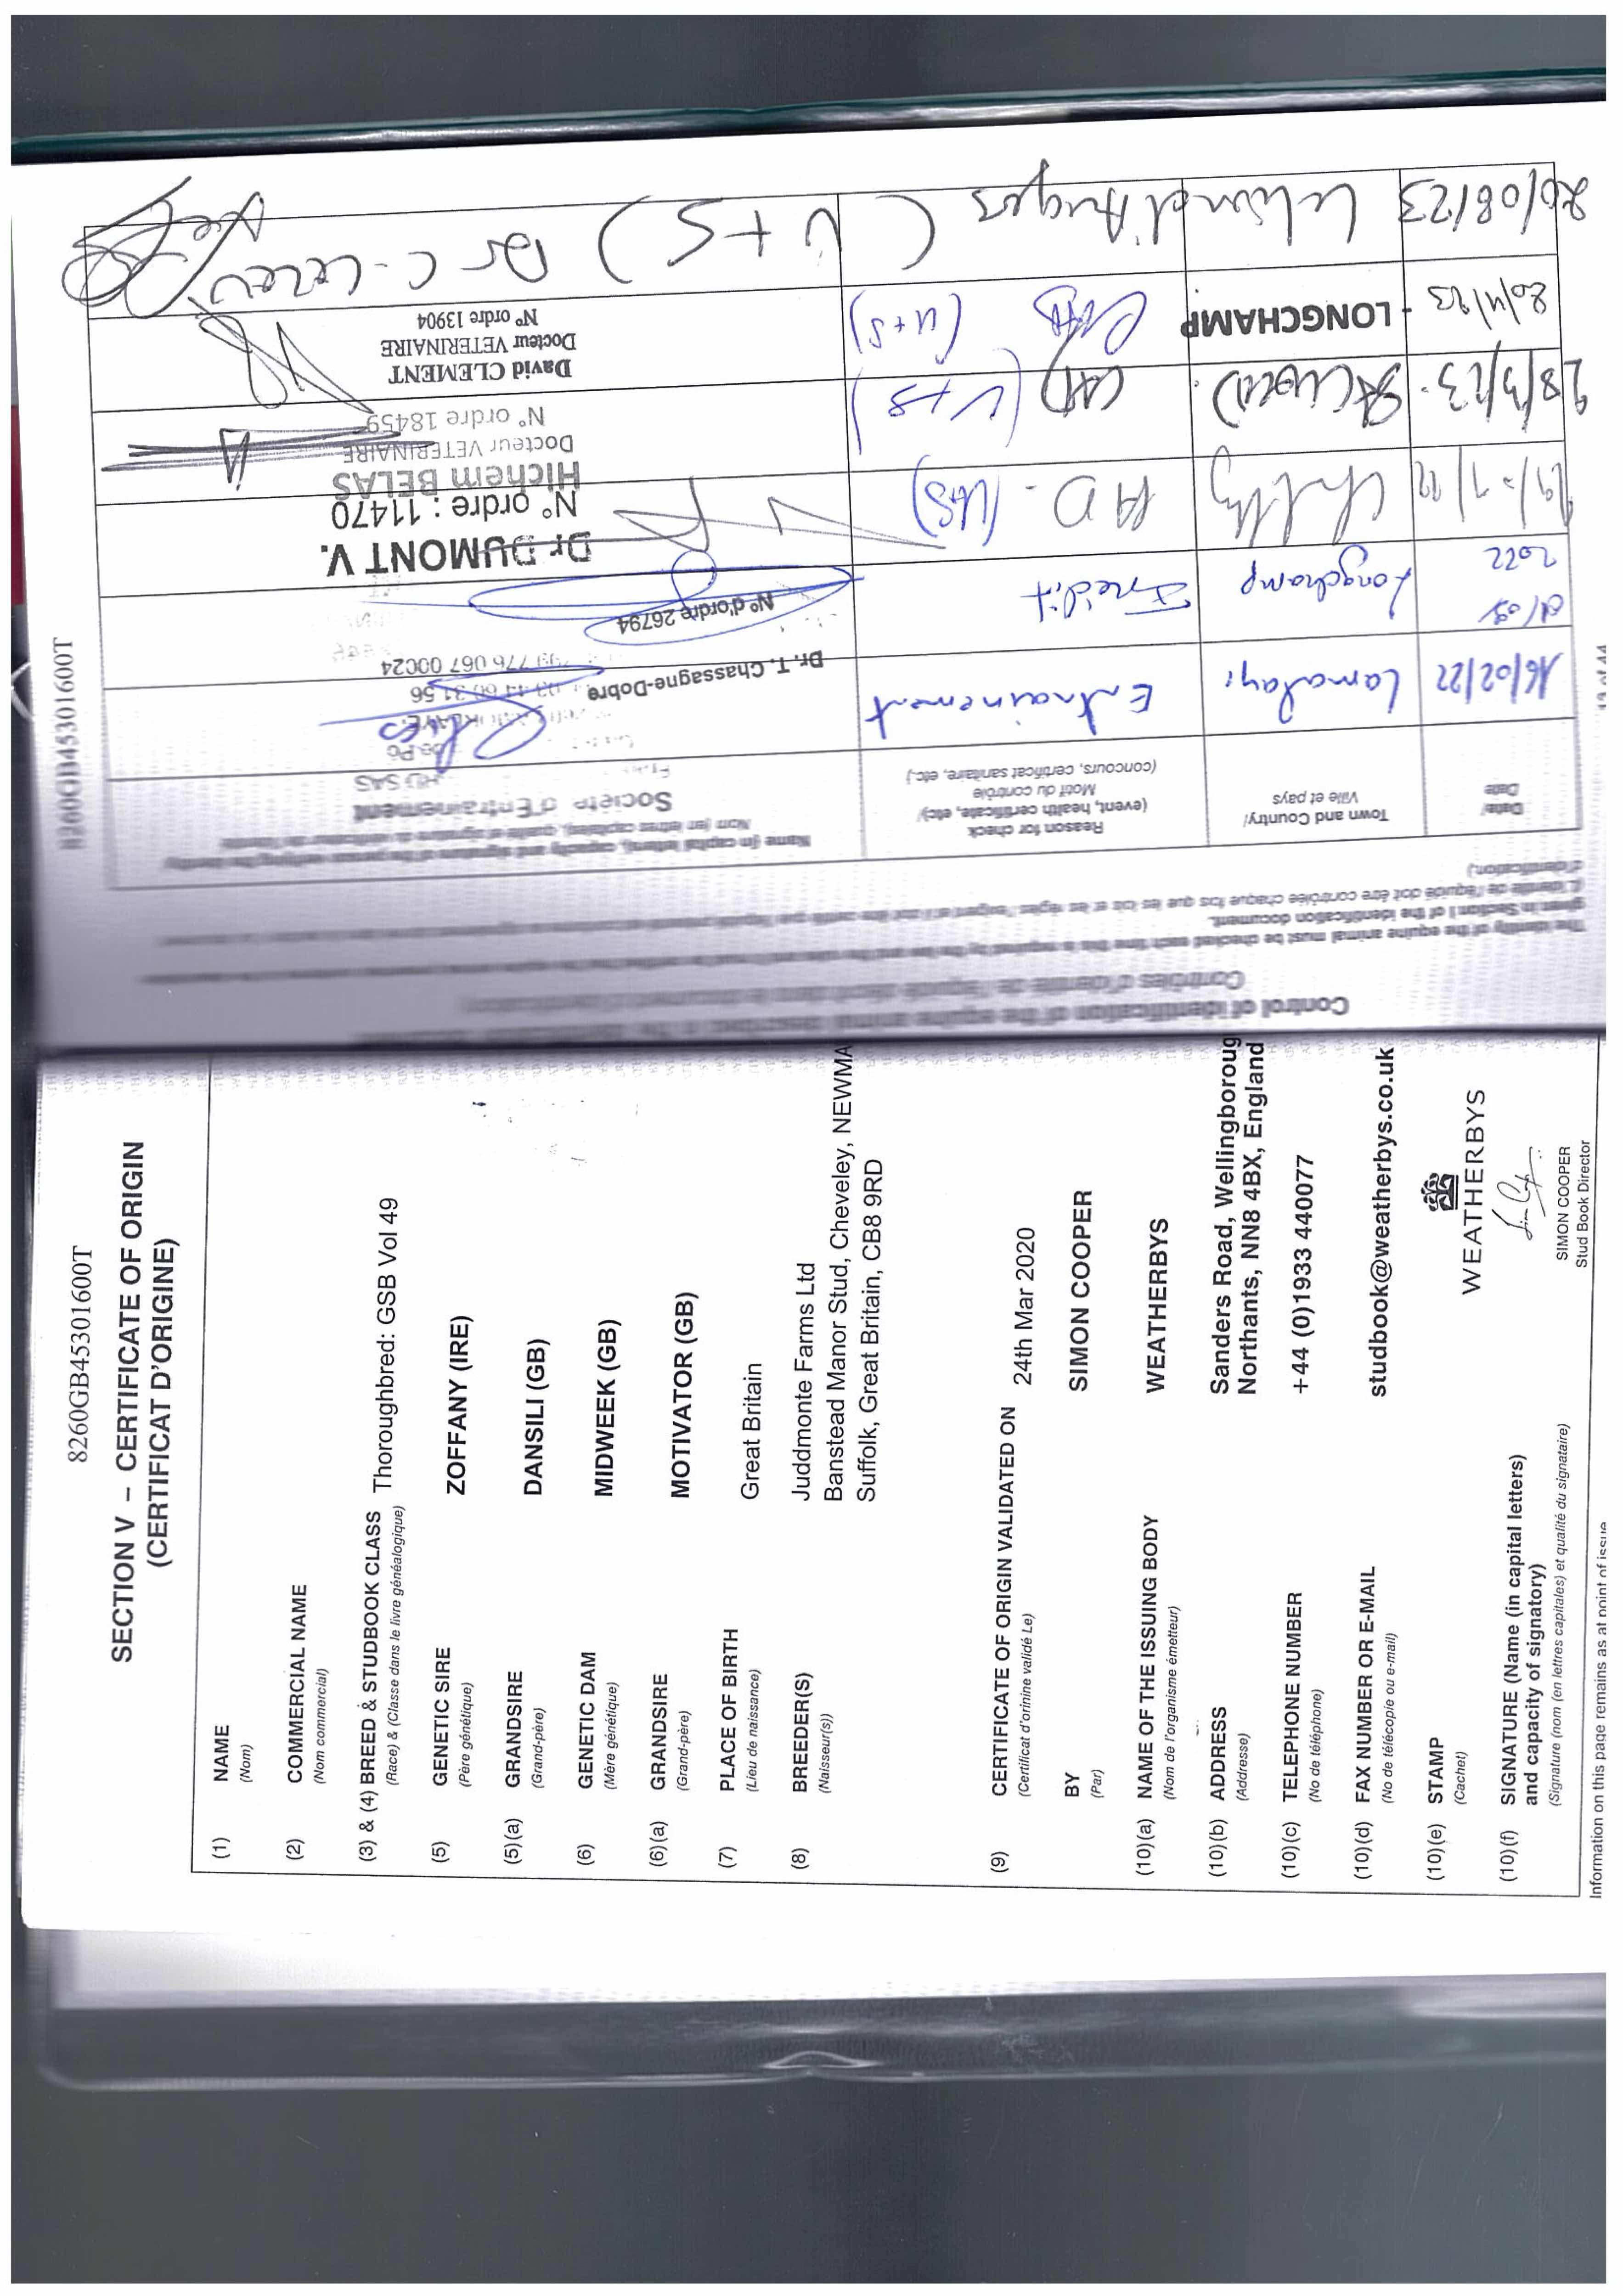 8260GB45301600T
SECTION V – CERTIFICATE OF ORIGIN
(CERTIFICAT D'ORIGINE)
(1) NAME
(Nom)
(2) COMMERCIAL NAME
(Nom commercial)
(3) & (4) BREED & STUDBOOK CLASS Thoroughbred: GSB Vol 49
(Race) & (Classe dans le livre généalogique)
(5) GENETIC SIRE ZOFFANY (IRE)
(Père génétique)
(5)(a) GRANDSIRE DANSILI (GB)
(Grand-père)
(6) GENETIC DAM MIDWEEK (GB)
(Mère génétique)
(6)(a) GRANDSIRE MOTIVATOR (GB)
(Grand-père)
(7) PLACE OF BIRTH Great Britain
(Lieu de naissance)
(8) BREEDER(S) Juddmonte Farms Ltd
(Naisseur(s)) Banstead Manor Stud, Cheveley, NEWMA
Suffolk, Great Britain, CB8 9RD
(9) CERTIFICATE OF ORIGIN VALIDATED ON 24th Mar 2020
(Certificat d'orinine validé Le)
BY SIMON COOPER
(Par)
(10)(a) NAME OF THE ISSUING BODY WEATHERBYS
(Nom de l'organisme émetteur)
(10)(b) ADDRESS Sanders Road, Wellingboroug
(Addresse) Northants, NN8 4BX, England
(10)(c) TELEPHONE NUMBER +44 (0)1933 440077
(No de téléphone)
(10)(d) FAX NUMBER OR E-MAIL studbook@weatherbys.co.uk
(No de télécopie ou e-mail)
(10)(e) STAMP
(Cachet) WEATHERBYS
(10)(f) SIGNATURE (Name (in capital letters)
and capacity of signatory)
(Signature (nom (en lettres capitales) et qualité du signataire)
SIMON COOPER
Stud Book Director
Information on this page remains as at point of issue
Control of identification of the equine animal described in the identification document
Contrôles d'identité de l'équidé décrit dans le document d'identification
The identity of the equine animal must be checked each time this is required by the law and the rules
given in Section I of the identification document.
(L'identité de l'équidé doit être contrôlée chaque fois que les lois et les règles l'exigent
d'identification.)
Date/
Date
Town and Country/
Ville et pays
Reason for check
(event, health certificate, etc)/
Motif du contrôle
(concours, certificat sanitaire, etc.)
Name (in capital letters), capacity and signature of the person verifying the identity
Nom (en lettres capitales), qualité et signature
Société d'Entrainement
HD SAS
16/02/22 Lamorlaye Entrainement
03 44 60 31 56
067 00024
01/09 2022 Longchamp Inédit
Dr. T. Chassagne-Dobre
N° d'ordre 26794
Chantilly AD - (U+S)
Dr DUMONT V.
N° ordre : 11470
28/3/23 St Cloud (U+S)
Hichem BELAS
Docteur VETERINAIRE
N° ordre 18459
20/4/23 - LONGCHAMP (U+S)
David CLEMENT
Docteur VETERINAIRE
N° ordre 13904
20/08/23 Le Lion d'Angers (U+S) Dr C.
8260GB45301600T